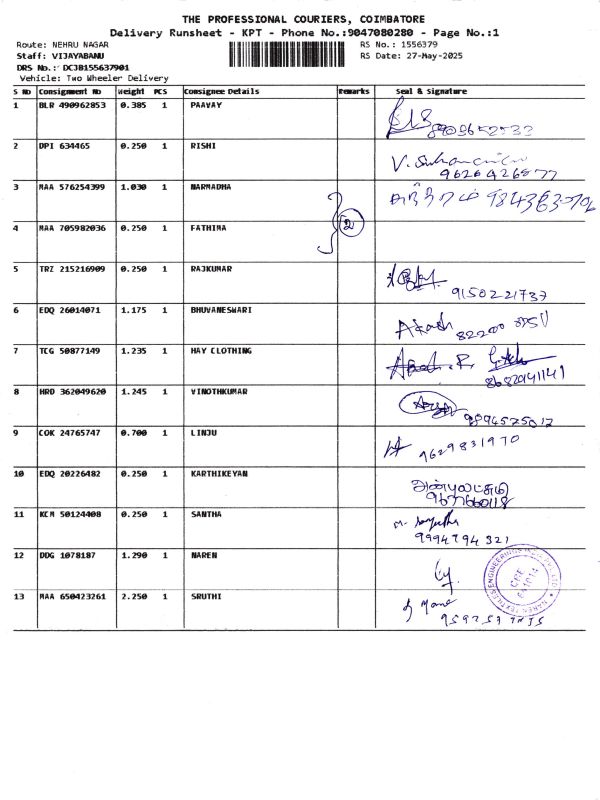 THE PROFESSIONAL COURIERS, COIMBATORE
Delivery Runsheet - KPT - Phone No.:9047080280 - Page No.:1
Route: NEHRU NAGAR RS No.: 1556379
Staff: VIJAYABANU RS Date: 27-May-2025
DRS No.: DCJB155637901
Vehicle: Two Wheeler Delivery
S No Consignment No Weight PCS Consignee Details Remarks Seal & Signature
1 BLR 490962853 0.385 1 PAAVAY
2 DPI 634465 0.250 1 RISHI
9626426877
3 MAA 576254399 1.030 1 NARMADHA
4 MAA 705982036 0.250 1 FATHIMA
2
5 TRZ 215216909 0.250 1 RAJKUMAR
9150221737
6 EDQ 26014071 1.175 1 BHUVANESWARI
Akash
7 TCG 50877149 1.235 1 HAY CLOTHING
8682941141
8 HRD 362049620 1.245 1 VINOTHKUMAR
9894575012
9 COK 24765747 0.700 1 LINJU
9629831970
10 EDQ 20226482 0.250 1 KARTHIKEYAN
11 KCM 50124408 0.250 1 SANTHA
9994794321
12 DDG 1078187 1.290 1 NAREN
CBE
641014
13 MAA 650423261 2.250 1 SRUTHI